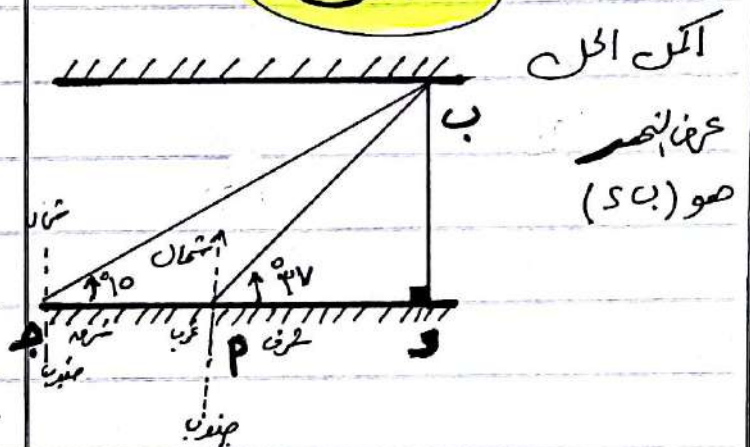 اكمل الحل
عرض النهر
هو (ب د)
ب
شمال
شمال
°١٥
°٣٧
ج
شرق
غرب
أ
شرق
د
جنوب
جنوب